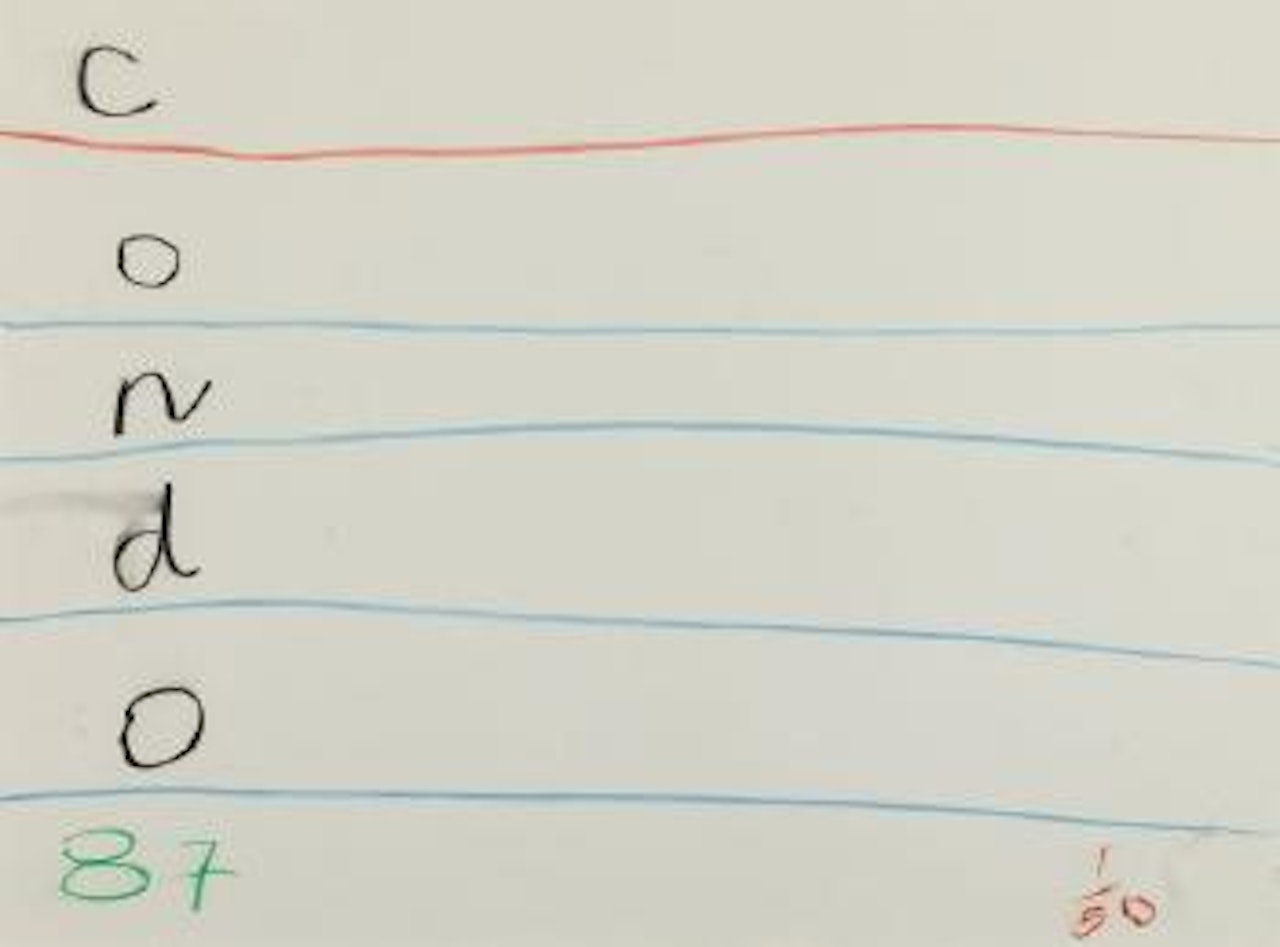 C
o
n
d
O
87
1
50